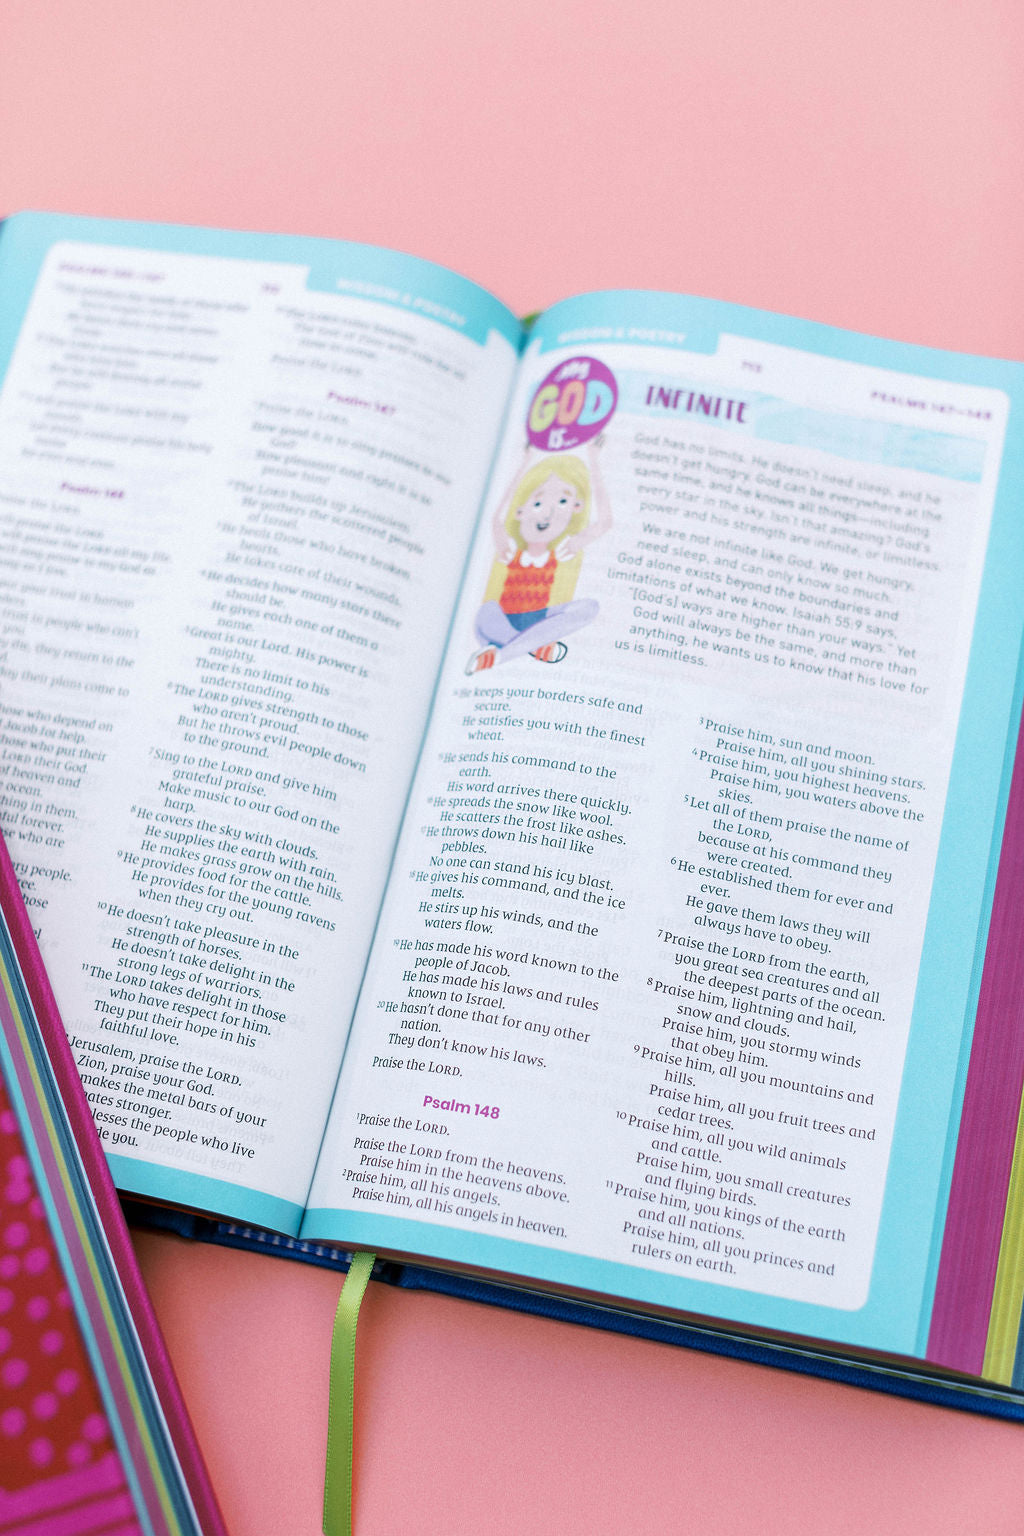 PSALMS 145–147
WISDOM & POETRY
Psalm 146
Praise the LORD.
the LORD all my life
put your trust in human
trust in people who can't
die, they return to the
day their plans come to
those who depend on
Jacob for help.
those who put their
LORD their God.
of heaven and
ocean.
thing in them.
ful forever.
se who are
ry people.
ree.
hose
Praise the LORD.
Psalm 147
Praise the LORD.
How good it is to sing praises to our
God!
How pleasant and right it is to
praise him!
The LORD builds up Jerusalem.
He gathers the scattered people
of Israel.
³He heals those who have broken
hearts.
He takes care of their wounds.
⁴He decides how many stars there
should be.
He gives each one of them a
name.
⁵Great is our Lord. His power is
mighty.
There is no limit to his
understanding.
⁶The LORD gives strength to those
who aren't proud.
But he throws evil people down
to the ground.
⁷Sing to the LORD and give him
grateful praise.
Make music to our God on the
harp.
⁸He covers the sky with clouds.
He supplies the earth with rain.
He makes grass grow on the hills.
⁹He provides food for the cattle.
He provides for the young ravens
when they cry out.
¹⁰He doesn't take pleasure in the
strength of horses.
He doesn't take delight in the
strong legs of warriors.
¹¹The LORD takes delight in those
who have respect for him.
They put their hope in his
faithful love.
Jerusalem, praise the LORD.
Zion, praise your God.
makes the metal bars of your
ates stronger.
lesses the people who live
de you.
WISDOM & POETRY
713
PSALMS 147–148
My
GOD
is...
INFINITE
God has no limits. He doesn't need sleep, and he
doesn't get hungry. God can be everywhere at the
same time, and he knows all things—including
every star in the sky. Isn't that amazing? God's
power and his strength are infinite, or limitless.
We are not infinite like God. We get hungry,
need sleep, and can only know so much.
God alone exists beyond the boundaries and
limitations of what we know. Isaiah 55:9 says,
"[God's] ways are higher than your ways." Yet
God will always be the same, and more than
anything, he wants us to know that his love for
us is limitless.
¹⁴He keeps your borders safe and
secure.
He satisfies you with the finest
wheat.
¹⁵He sends his command to the
earth.
His word arrives there quickly.
¹⁶He spreads the snow like wool.
He scatters the frost like ashes.
¹⁷He throws down his hail like
pebbles.
No one can stand his icy blast.
¹⁸He gives his command, and the ice
melts.
He stirs up his winds, and the
waters flow.
¹⁹He has made his word known to the
people of Jacob.
He has made his laws and rules
known to Israel.
²⁰He hasn't done that for any other
nation.
They don't know his laws.
Praise the LORD.
Psalm 148
¹Praise the LORD.
Praise the LORD from the heavens.
Praise him in the heavens above.
²Praise him, all his angels.
Praise him, all his angels in heaven.
³Praise him, sun and moon.
Praise him, all you shining stars.
⁴Praise him, you highest heavens.
Praise him, you waters above the
skies.
⁵Let all of them praise the name of
the LORD,
because at his command they
were created.
⁶He established them for ever and
ever.
He gave them laws they will
always have to obey.
⁷Praise the LORD from the earth,
you great sea creatures and all
the deepest parts of the ocean.
⁸Praise him, lightning and hail,
snow and clouds.
Praise him, you stormy winds
that obey him.
⁹Praise him, all you mountains and
hills.
Praise him, all you fruit trees and
cedar trees.
¹⁰Praise him, all you wild animals
and cattle.
Praise him, you small creatures
and flying birds.
¹¹Praise him, you kings of the earth
and all nations.
Praise him, all you princes and
rulers on earth.